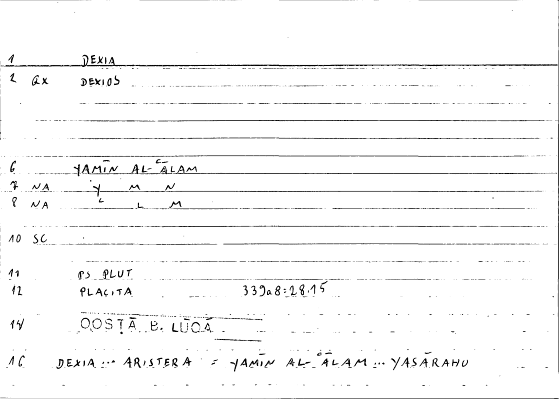 1 DEXIA
2 GX DEXIOS
6 YAMĪN AL-ʿĀLAM
7 NA Y M N
8 NA ʿ L M
10 SC
11 PS PLUT
12 PLACITA 339a8:28.15
14 QOSṬĀ B. LŪQĀ
16 DEXIA ... ARISTERA = YAMĪN AL-ʿĀLAM ... YASĀRAHU